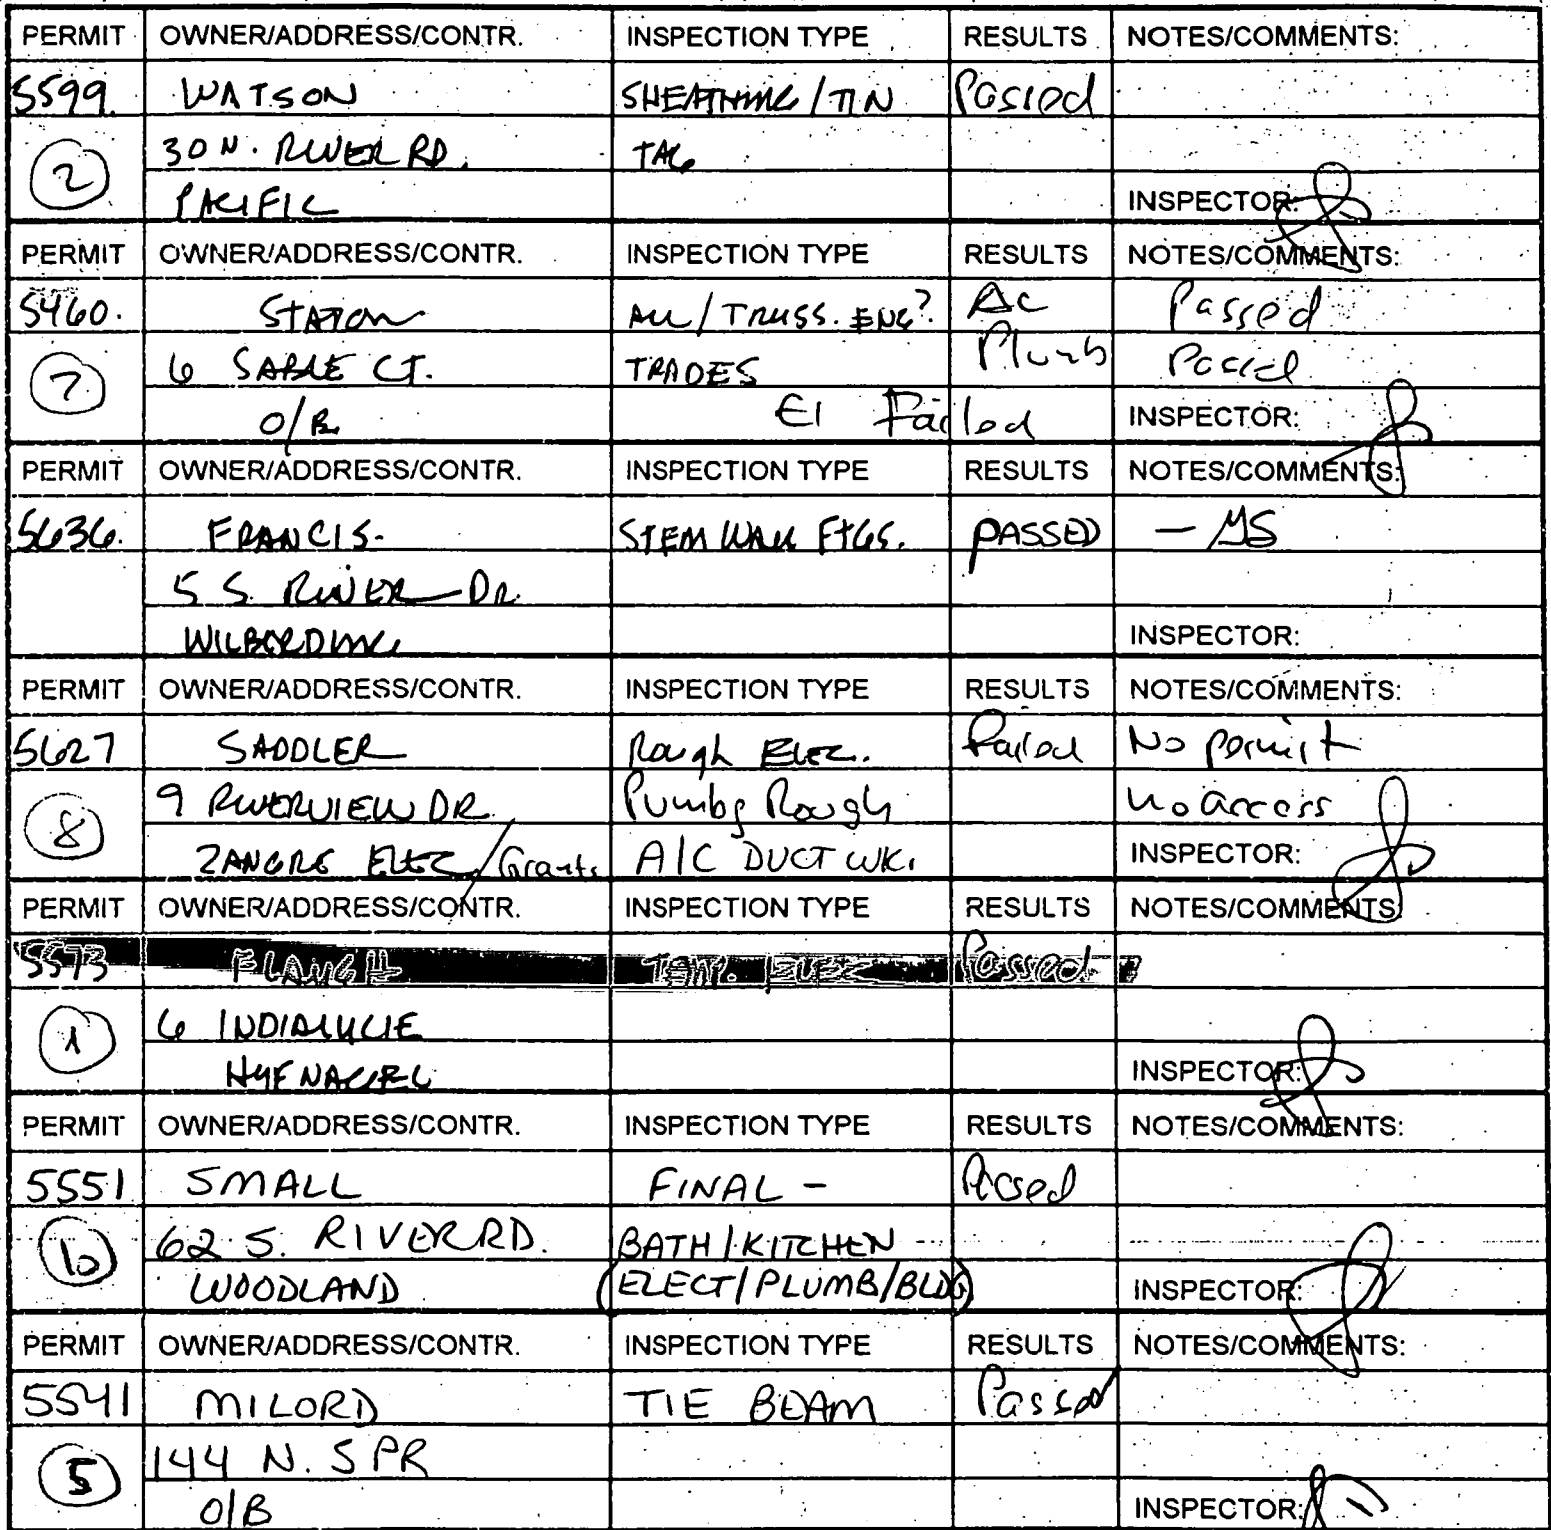 PERMIT OWNER/ADDRESS/CONTR. INSPECTION TYPE RESULTS NOTES/COMMENTS:
5599. WATSON SHEATHING/TIN Passed
② 30 N. RIVER RD. TAG
PACIFIC INSPECTOR:
PERMIT OWNER/ADDRESS/CONTR. INSPECTION TYPE RESULTS NOTES/COMMENTS:
5460. STATON ALL/TRUSS. ENG? AC Passed
⑦ 6 SABLE CT. TRADES Plumb Passed
O/B El Failed INSPECTOR:
PERMIT OWNER/ADDRESS/CONTR. INSPECTION TYPE RESULTS NOTES/COMMENTS:
5636. FRANCIS- STEM WALL FTGS. PASSED —
5 S. RIVER DR.
WILBERDING INSPECTOR:
PERMIT OWNER/ADDRESS/CONTR. INSPECTION TYPE RESULTS NOTES/COMMENTS:
5627 SADDLER Rough ELEC. Failed No permit
⑧ 9 RIVERVIEW DR. Pumbg Rough No access
ELEC/Grants A/C DUCT WK. INSPECTOR:
PERMIT OWNER/ADDRESS/CONTR. INSPECTION TYPE RESULTS NOTES/COMMENTS:
5573 FLAUGH TEMP. ELEC Passed
① 6 INDIALUCIE
HUFNAGEL INSPECTOR:
PERMIT OWNER/ADDRESS/CONTR. INSPECTION TYPE RESULTS NOTES/COMMENTS:
5551 SMALL FINAL - Passed
62 S. RIVER RD. BATH/KITCHEN
WOODLAND (ELECT/PLUMB/BLDG) INSPECTOR:
PERMIT OWNER/ADDRESS/CONTR. INSPECTION TYPE RESULTS NOTES/COMMENTS:
5541 MILORD TIE BEAM Passed
⑤ 144 N. SPR
O/B INSPECTOR: